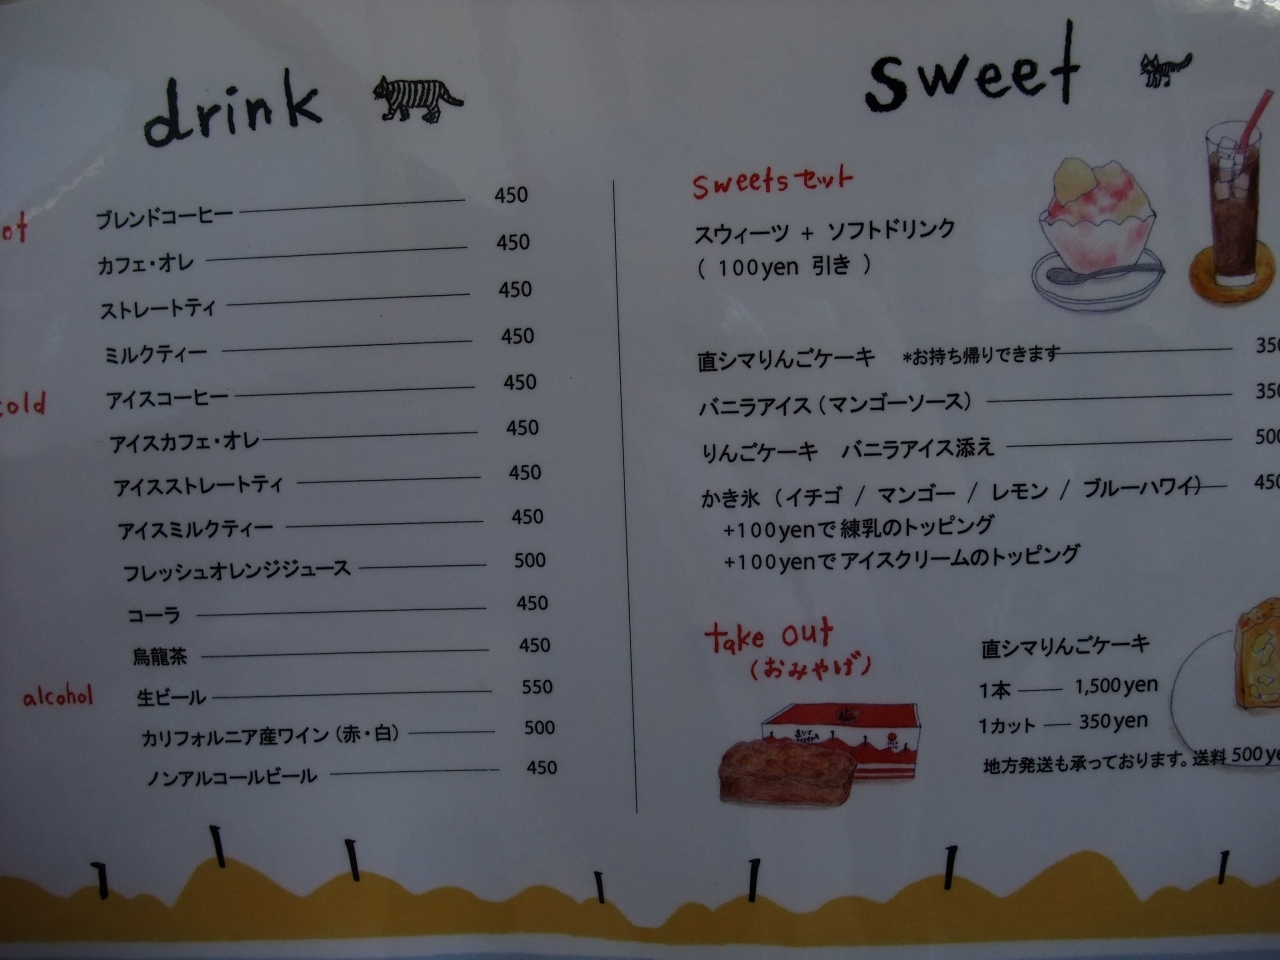 drink
ブレンドコーヒー 450
カフェ・オレ 450
ストレートティ 450
ミルクティー 450
cold
アイスコーヒー 450
アイスカフェ・オレ 450
アイスストレートティ 450
アイスミルクティー 450
フレッシュオレンジジュース 500
コーラ 450
烏龍茶 450
alcohol
生ビール 550
カリフォルニア産ワイン（赤・白） 500
ノンアルコールビール 450
sweet
sweetsセット
スウィーツ + ソフトドリンク
( 100yen 引き )
直シマりんごケーキ *お持ち帰りできます 350
バニラアイス（マンゴーソース） 350
りんごケーキ バニラアイス添え 500
かき氷（イチゴ / マンゴー / レモン / ブルーハワイ） 450
+100yenで練乳のトッピング
+100yenでアイスクリームのトッピング
take out
(おみやげ)
直シマりんごケーキ
1本 1,500yen
1カット 350yen
地方発送も承っております。送料500ye